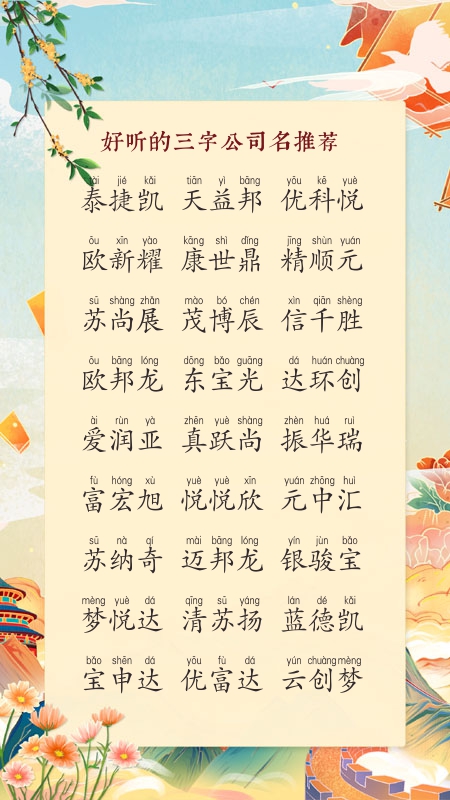 好听的三字公司名推荐
tài jié kǎi tiān yì bāng yōu kē yuè
泰捷凯 天益邦 优科悦
ōu xīn yào kāng shì dǐng jīng shùn yuán
欧新耀 康世鼎 精顺元
sū shàng zhǎn mào bó chén xìn qiān shèng
苏尚展 茂博辰 信千胜
ōu bāng lóng dōng bǎo guāng dá huán chuàng
欧邦龙 东宝光 达环创
ài rùn yà zhēn yuè shàng zhèn huá ruì
爱润亚 真跃尚 振华瑞
fù hóng xù yuè yuè xīn yuán zhōng huì
富宏旭 悦悦欣 元中汇
sū nà qí mài bāng lóng yín jùn bǎo
苏纳奇 迈邦龙 银骏宝
mèng yuè dá qīng sū yáng lán dé kǎi
梦悦达 清苏扬 蓝德凯
bǎo shēn dá yōu fù dá yún chuàng mèng
宝申达 优富达 云创梦